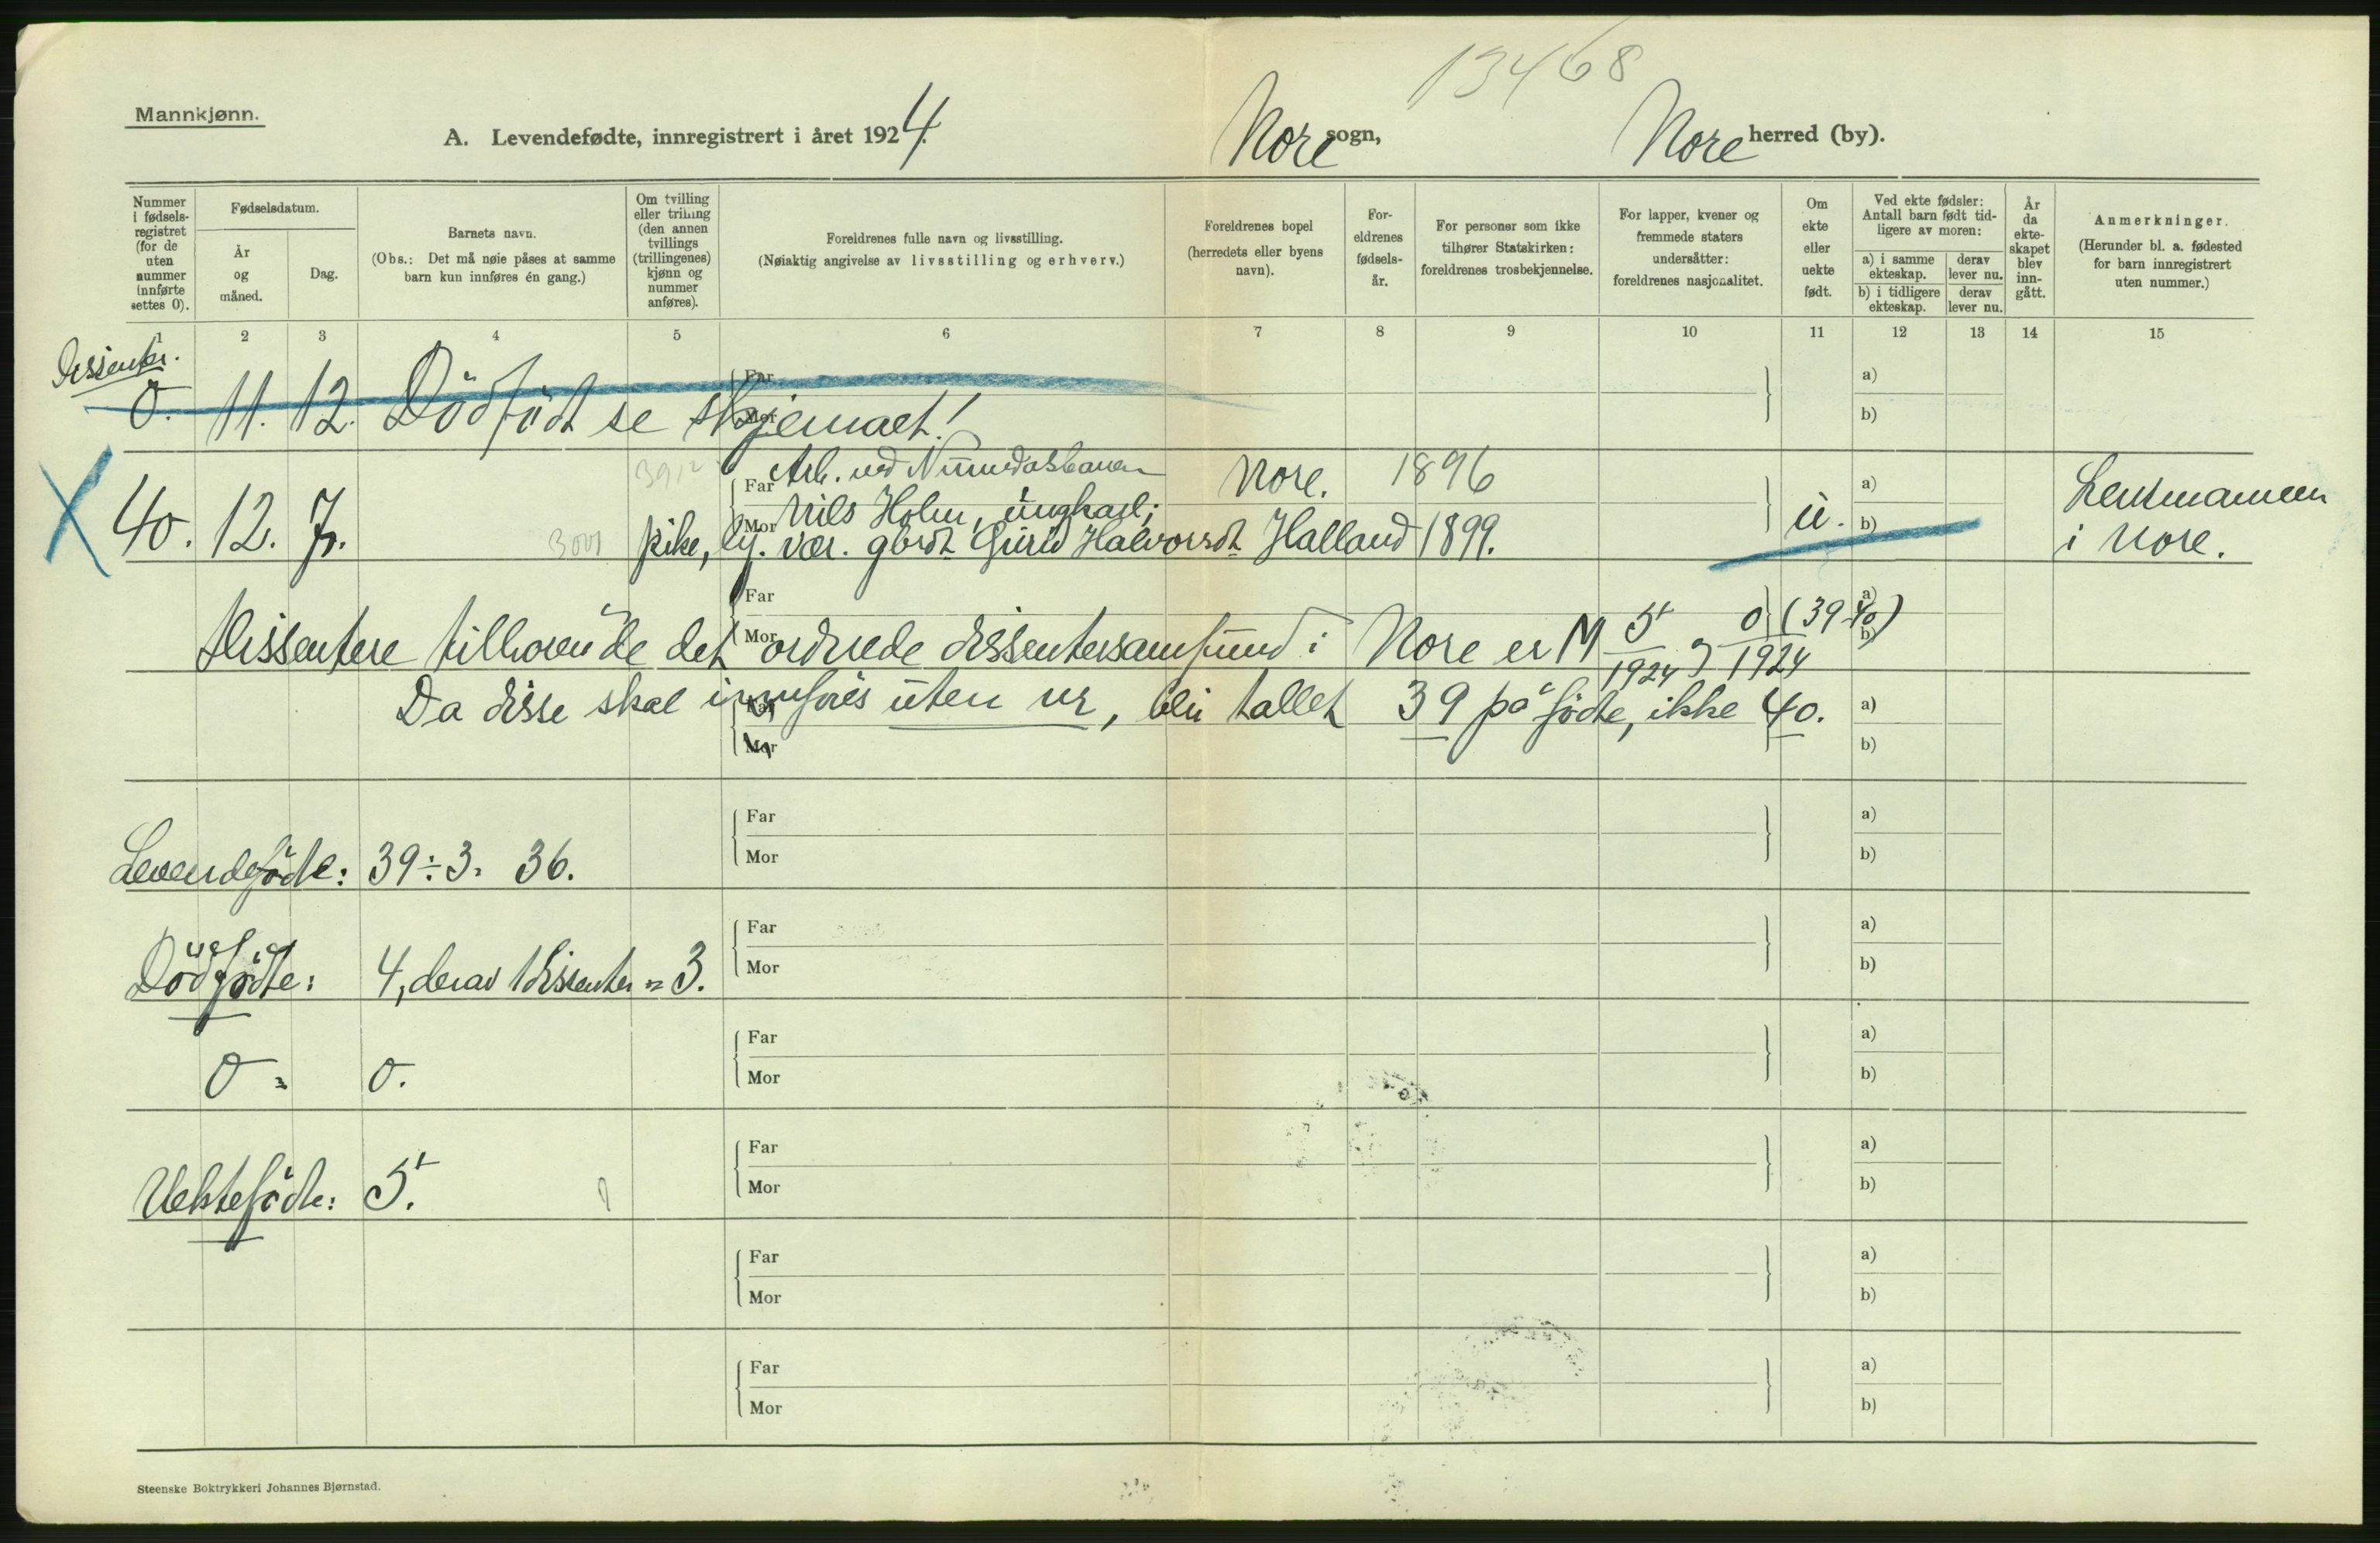 13468
Mannkjønn.
A. Levendefødte, innregistrert i året 1924.
Nore sogn,
Nore herred (by).
Nummer i fødsels-registret (for de uten nummer innførte settes 0).
Fødselsdatum.
År og måned.
Dag.
Barnets navn.
(Obs.: Det må nøie påses at samme barn kun innføres én gang.)
Om tvilling eller trilling (den annen tvillings (trillingenes) kjønn og nummer anføres).
Foreldrenes fulle navn og livsstilling.
(Nøiaktig angivelse av livsstilling og erhverv.)
Foreldrenes bopel
(herredets eller byens navn).
For-eldrenes fødsels-år.
For personer som ikke tilhører Statskirken: foreldrenes trosbekjennelse.
For lapper, kvener og fremmede staters undersåtter: foreldrenes nasjonalitet.
Om ekte eller uekte født.
Ved ekte fødsler: Antall barn født tid-ligere av moren:
a) i samme ekteskap.
derav lever nu.
b) i tidligere ekteskap.
derav lever nu.
År da ekte-skapet blev inn-gått.
Anmerkninger.
(Herunder bl. a. fødested for barn innregistrert uten nummer.)
1 2 3 4 5 6 7 8 9 10 11 12 13 14 15
Dissenter.
0. 11. 12. Dödfödt se skjemaet!
Far a)
Mor b)
X 40. 12. 7. 3912 Far Arb. ved Numedasbanen Nore. 1896 u. a) Lensmannen
Nils Holm, ungkarl;
3001 pike, Mor vær. gbrdt Gurid Halvorsdt Halland 1899. b) i Nore.
Far a)
Dissentere tilhørende det ordnede dissentersamfund i Nore er M 5/1924 og 0/1924 (39-40)
Mor b)
Da disse skal innføres uten nr, bli tallet 39 på fødte, ikke 40.
Far a)
Mor b)
Far a)
Mor b)
Levendefödte: 39÷3= 36.
Far a)
Mor b)
Dödfödte: 4, derav 1 dissenter = 3.
Far a)
Mor b)
0 = 0.
Far a)
Mor b)
Uektefödte: 5.
Far a)
Mor b)
Far a)
Mor b)
Steenske Boktrykkeri Johannes Bjørnstad.